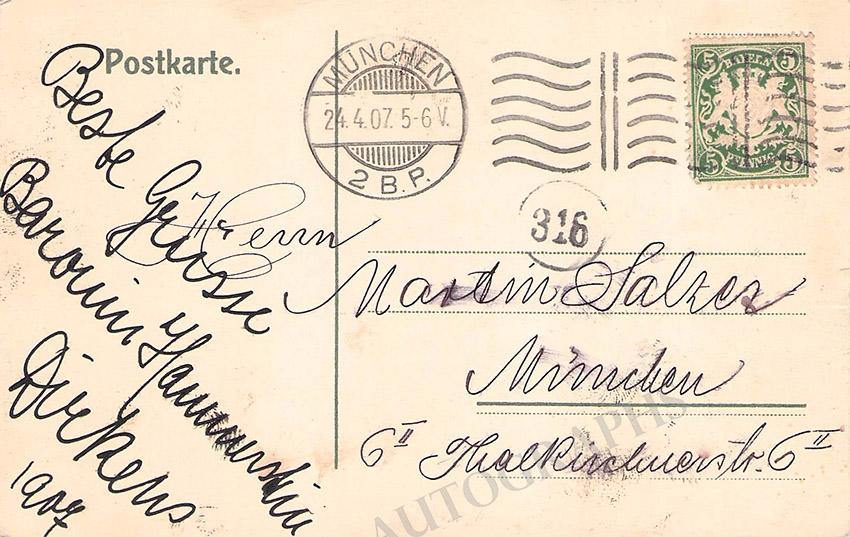 Postkarte.
MÜNCHEN
24.4.07. 5-6 V.
2 B.P.
5 5
BAYERN
5 5
PFENNIG
316
Beste Grüsse
Baronin Hammerstein
Dirkens
1907
Herrn
Martin Salzer
München
6 II Thalkirchnerstr. 6 II
AUTOGRAPHS